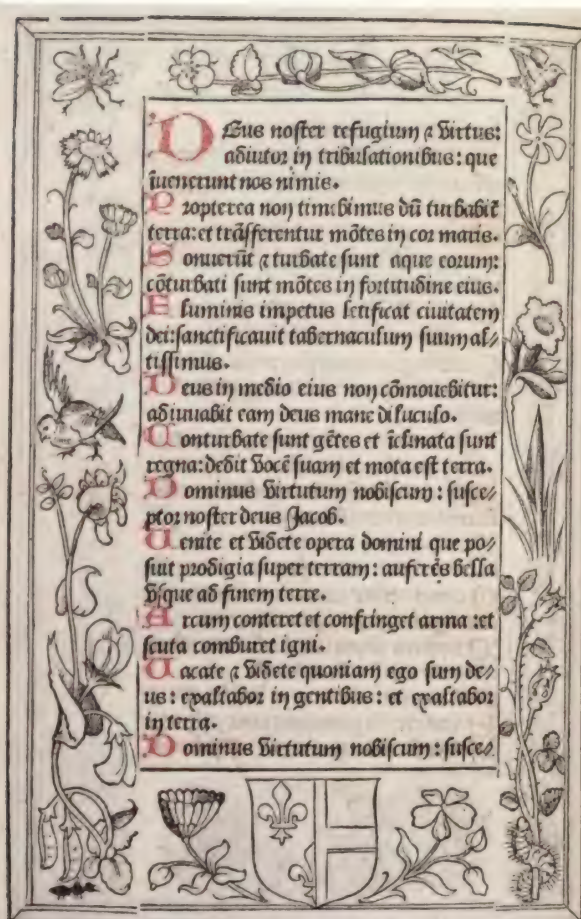 DEus noster refugium ⁊ virtus:
adiutor in tribulationibus: que
iuenerunt nos nimis.
Propterea non timebimus dū turbabit̄
terra: et trāsferentur mōtes in cor maris.
Sonuerūt ⁊ turbate sunt aque eorum:
cōturbati sunt mōtes in fortitudine eius.
Fluminis impetus letificat ciuitatem
dei: sanctificauit tabernaculum suum al⸗
tissimus.
Deus in medio eius non cōmouebitur:
adiuuabit eam deus mane diluculo.
Conturbate sunt gētes et īclinata sunt
regna: dedit vocē suam et mota est terra.
Dominus virtutum nobiscum: susce⸗
ptor noster deus Jacob.
Uenite et videte opera domini que po⸗
suit prodigia super terram: auferēs bella
vsque ad finem terre.
Arcum conteret et confringet arma: et
scuta comburet igni.
Uacate ⁊ videte quoniam ego sum de⸗
us: exaltabor in gentibus: et exaltabor
in terra.
Dominus virtutum nobiscum: susce⸗